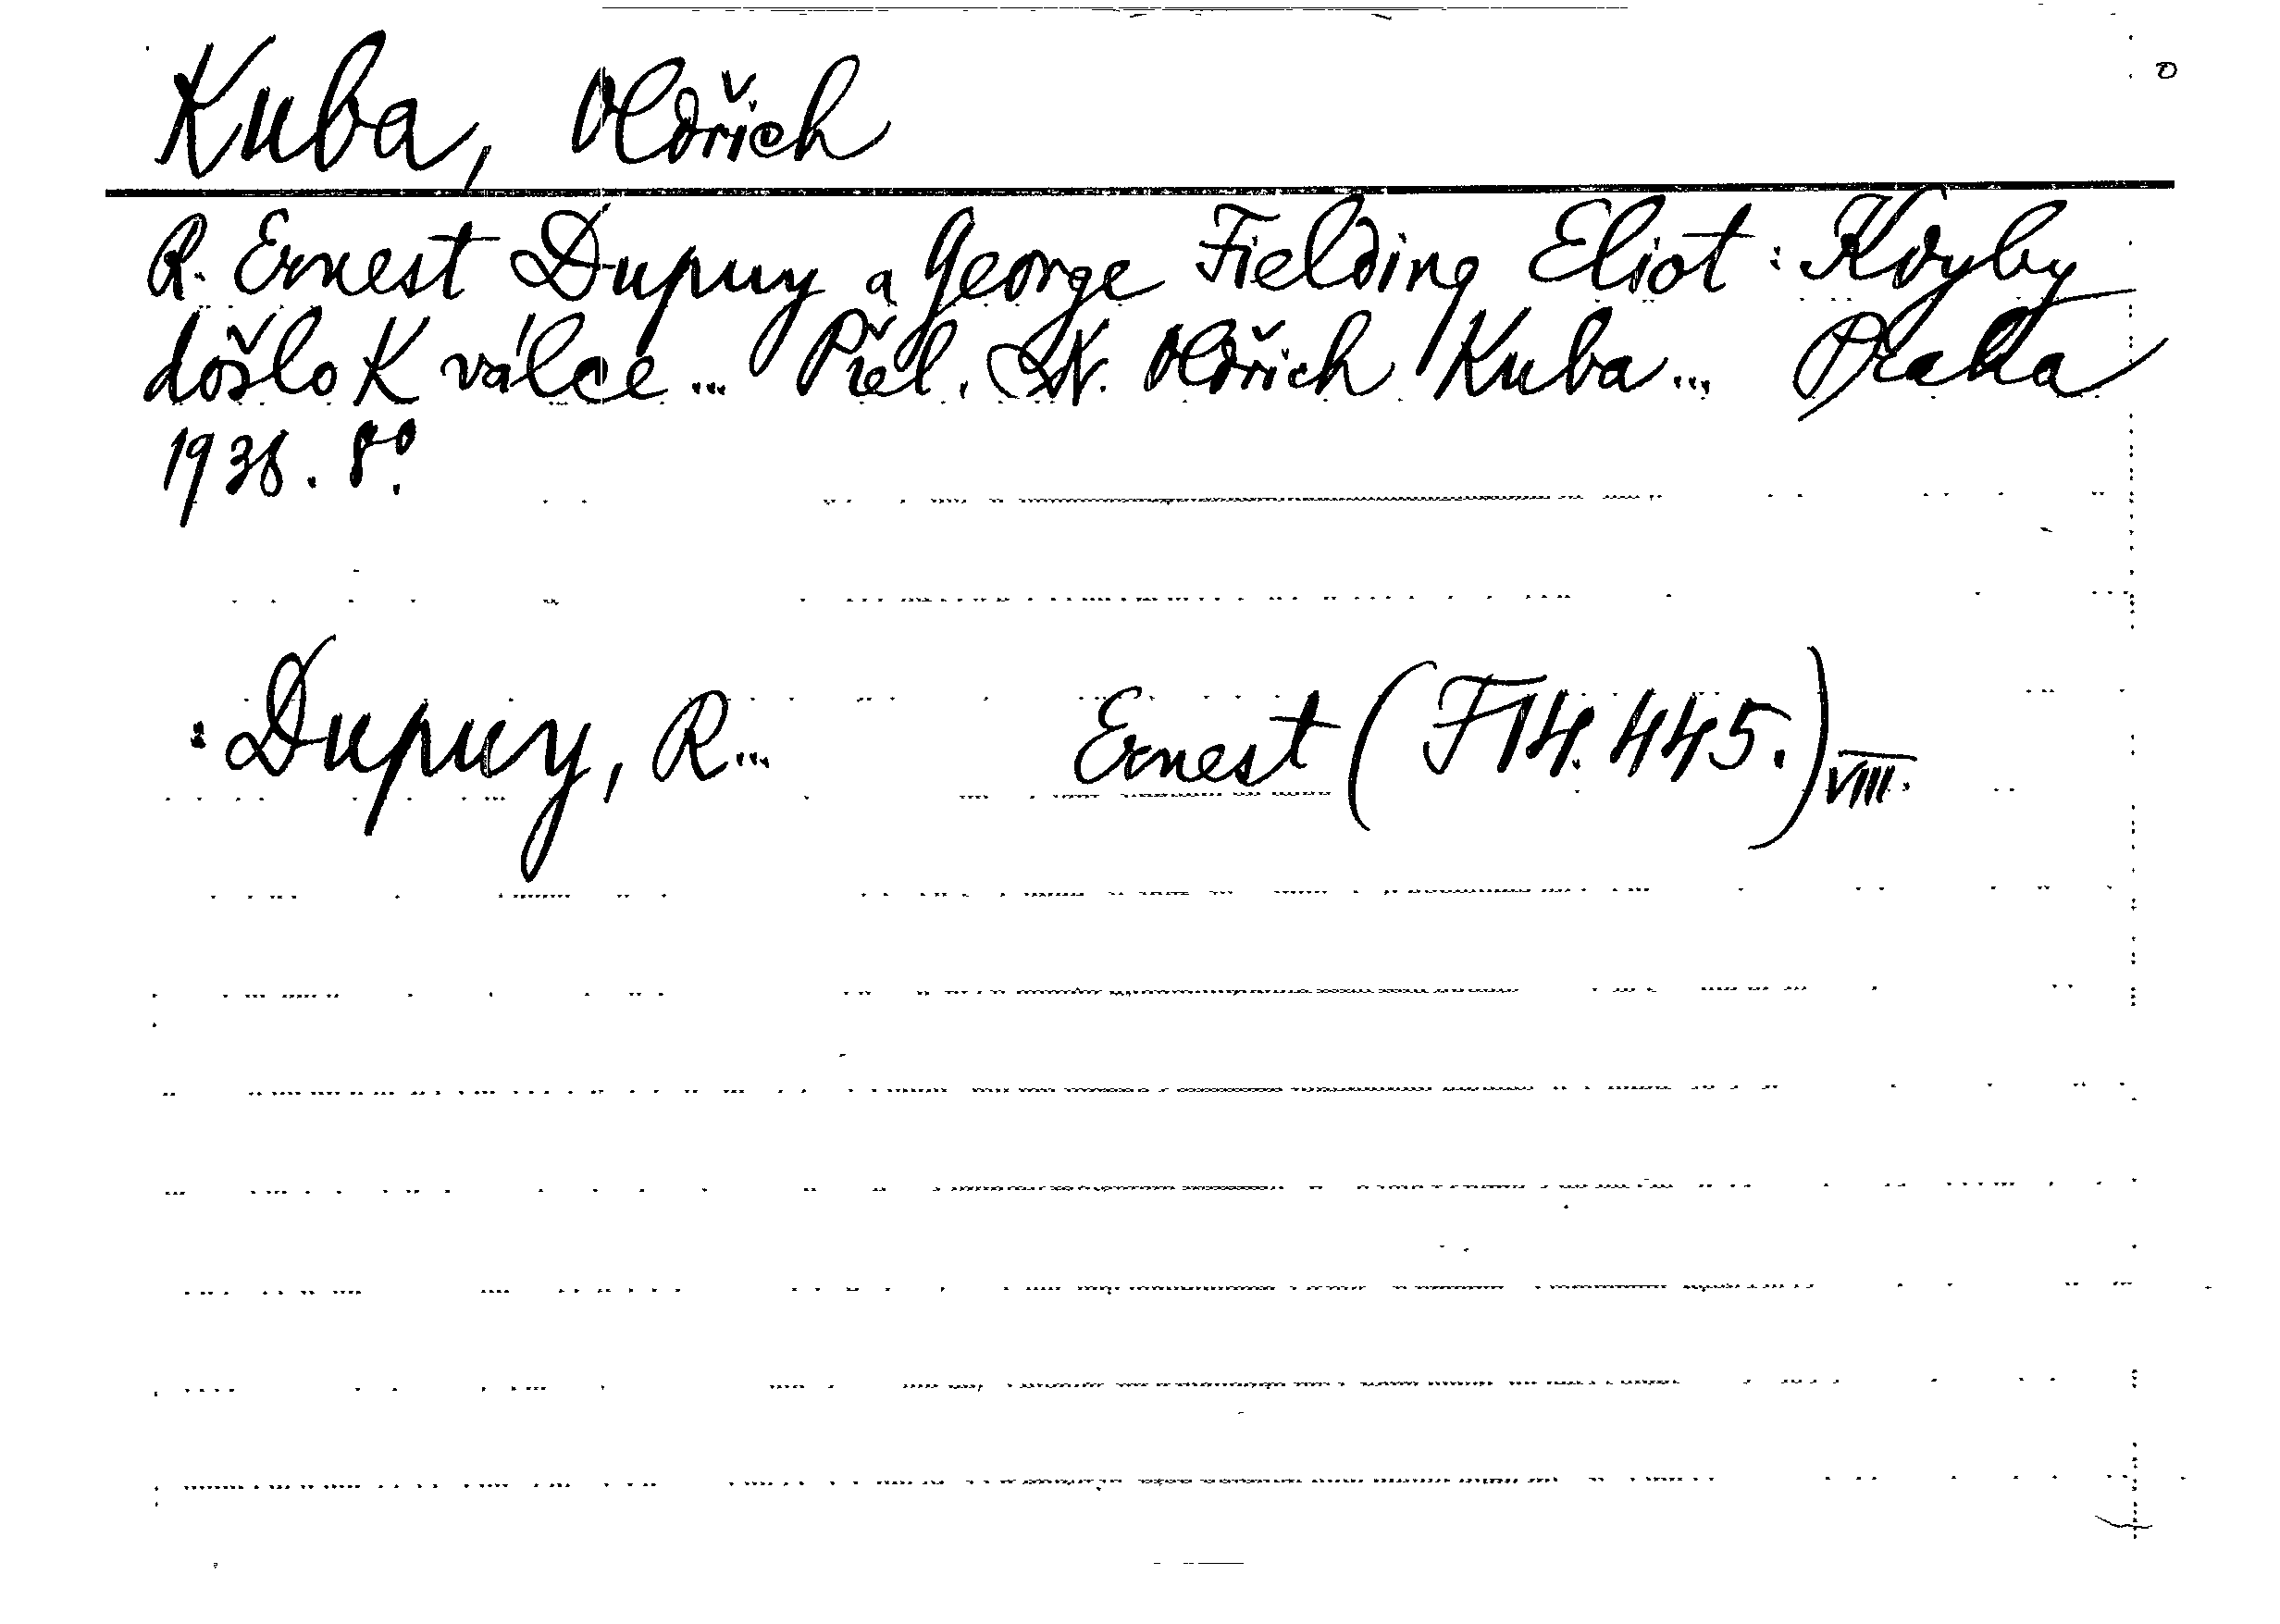 Kuba, Oldřich
R. Ernest Dupuy a George Fielding Eliot: Kdyby
došlo k válce... Přel. Oldřich Kuba... Praha
1938. 8°.
: Dupuy, R... Ernest (F 14.445.)
VIII.